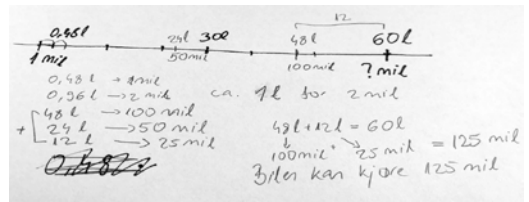 12
0,48l 24l 30l 48l 60l
1 mil 50mil 100mil ? mil
0,48l → 1mil
0,96l → 2 mil ca. 1l for 2mil
48l → 100 mil
+ 24l → 50 mil
12l → 25 mil
48l + 12l = 60l
100mil + 25 mil = 125 mil
Bilen kan kjøre 125 mil